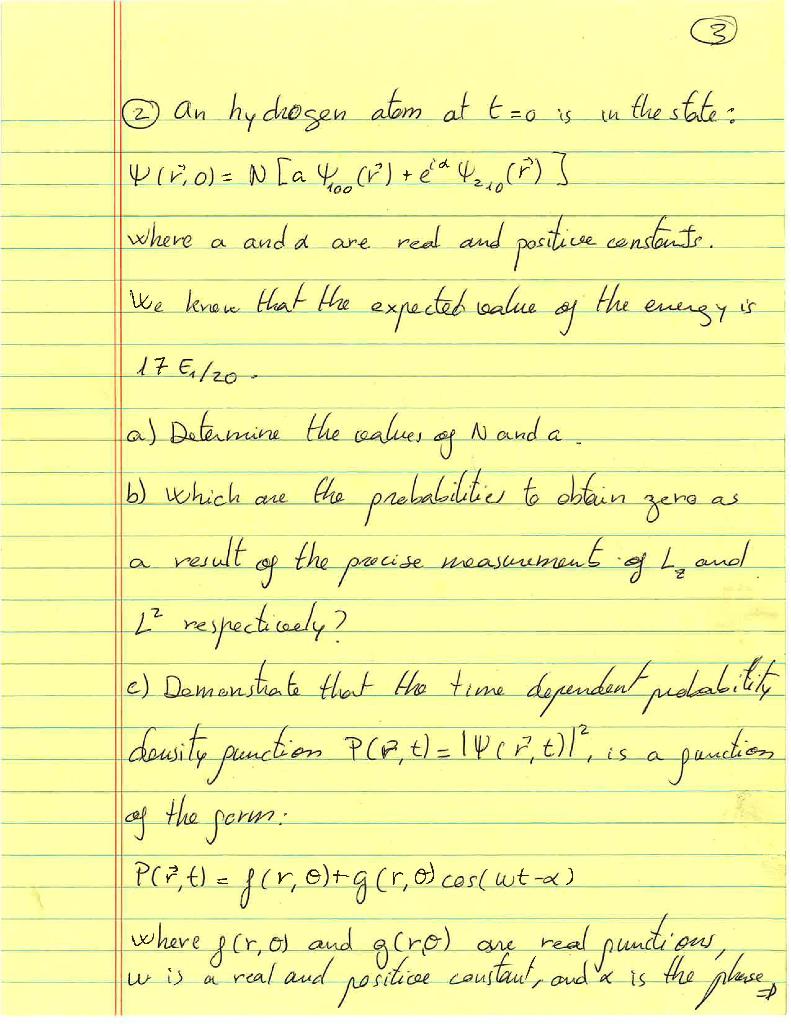 3
② An hydrogen atom at t=0 is in the state:
Ψ(r⃗,0) = N [a Ψ₁₀₀(r⃗) + e^{iα} Ψ₂₁₀(r⃗)]
where a and α are real and positive constants.
We know that the expected value of the energy is
17 E₁/20.
a) Determine the values of N and a.
b) Which are the probabilities to obtain zero as
a result of the precise measurement of L_z and
L² respectively?
c) Demonstrate that the time dependent probability
density function P(r⃗,t) = |Ψ(r⃗,t)|², is a function
of the form:
P(r⃗,t) = f(r,θ)+g(r,θ) cos(ωt-α)
where f(r,θ) and g(r,θ) are real functions,
ω is a real and positive constant, and α is the phase ⇒